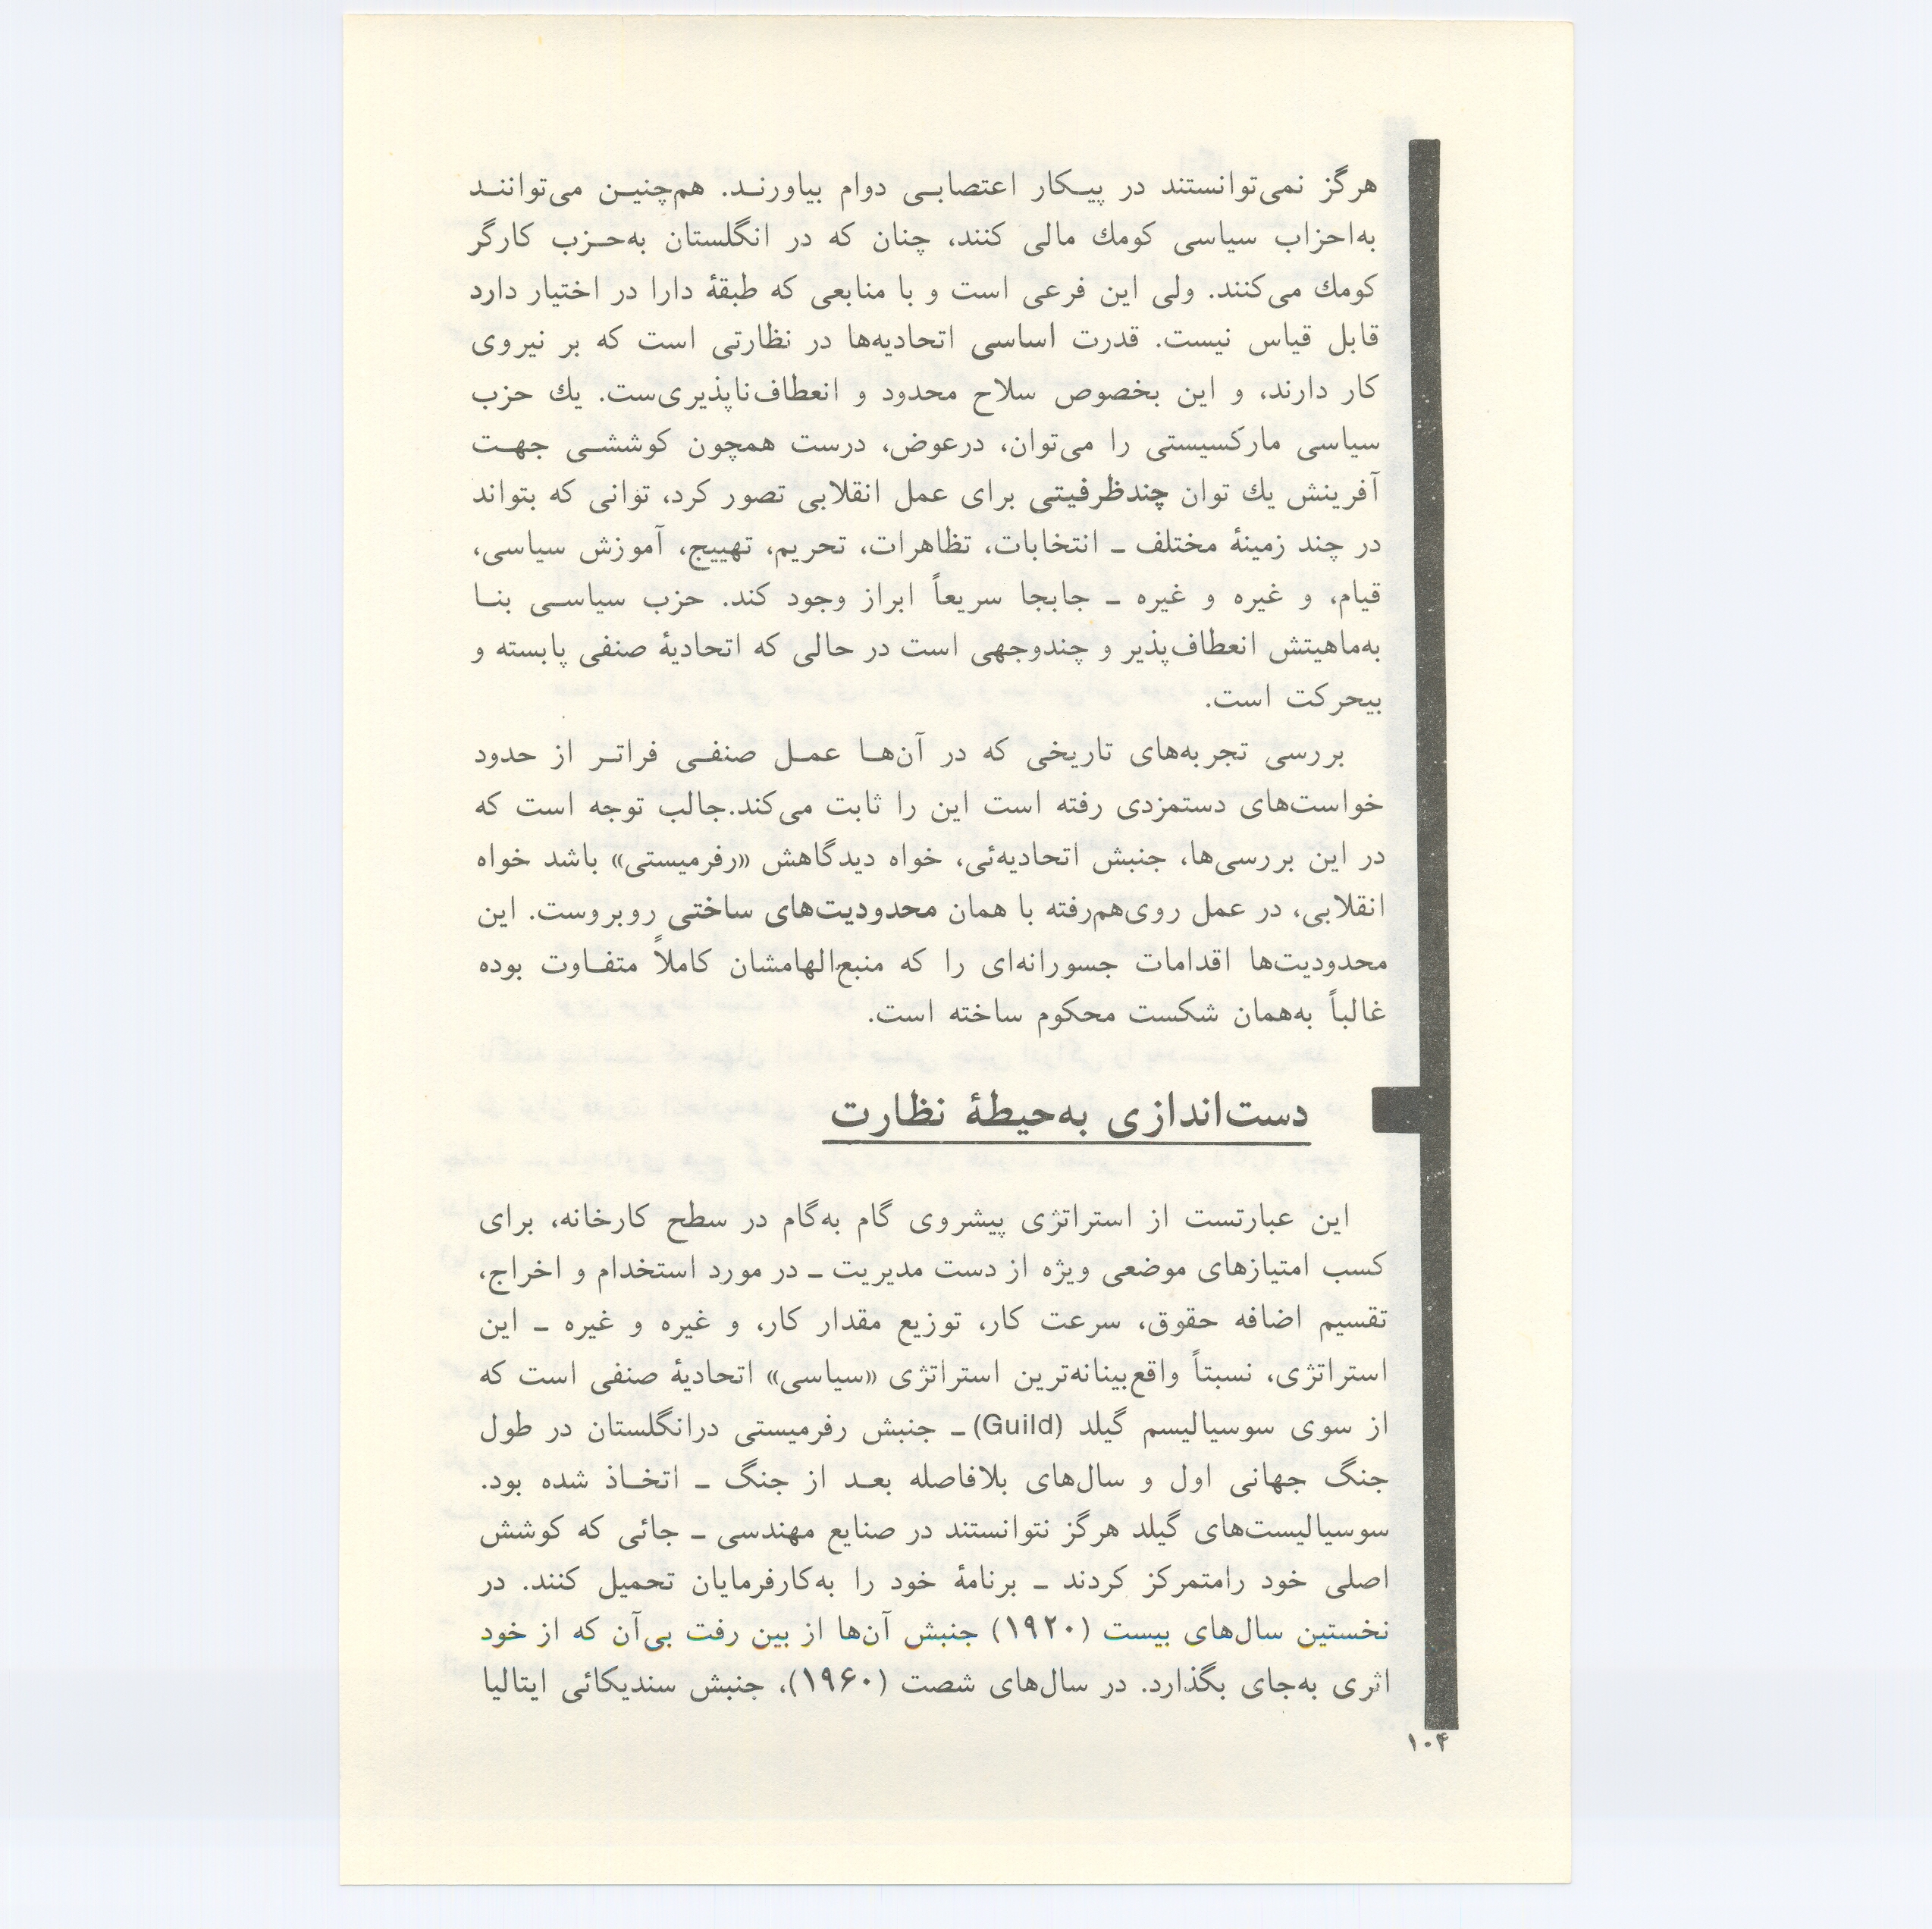 هرگز نمی‌توانستند در پیـکار اعتصابـی دوام بیاورنـد. هم‌چنیـن می‌تواننـد
به‌احزاب سیاسی کومك مالی کنند، چنان که در انگلستان به‌حـزب کارگر
کومك می‌کنند. ولی این فرعی است و با منابعی که طبقهٔ دارا در اختیار دارد
قابل قیاس نیست. قدرت اساسی اتحادیه‌ها در نظارتی است که بر نیروی
کار دارند، و این بخصوص سلاح محدود و انعطاف‌ناپذیری‌ست. یك حزب
سیاسی مارکسیستی را می‌توان، درعوض، درست همچون کوششـی جهـت
آفرینش یك توان چندظرفیتی برای عمل انقلابی تصور کرد، توانی که بتواند
در چند زمینهٔ مختلف ـ انتخابات، تظاهرات، تحریم، تهییج، آموزش سیاسی،
قیام، و غیره و غیره ـ جابجا سریعاً ابراز وجود کند. حزب سیاسـی بنـا
به‌ماهیتش انعطاف‌پذیر و چندوجهی است در حالی که اتحادیهٔ صنفی پابسته و
بیحرکت است.
بررسی تجربه‌های تاریخی که در آن‌هـا عمـل صنفـی فراتـر از حدود
خواست‌های دستمزدی رفته است این را ثابت می‌کند.جالب توجه است که
در این بررسی‌ها، جنبش اتحادیه‌ئی، خواه دیدگاهش «رفرمیستی» باشد خواه
انقلابی، در عمل روی‌هم‌رفته با همان محدودیت‌های ساختی روبروست. این
محدودیت‌ها اقدامات جسورانه‌ای را که منبع‌الهامشان کاملاً متفـاوت بوده
غالباً به‌همان شکست محکوم ساخته است.
دست‌اندازی به‌حیطهٔ نظارت
این عبارتست از استراتژی پیشروی گام به‌گام در سطح کارخانه، برای
کسب امتیازهای موضعی ویژه از دست مدیریت ـ در مورد استخدام و اخراج،
تقسیم اضافه حقوق، سرعت کار، توزیع مقدار کار، و غیره و غیره ـ این
استراتژی، نسبتاً واقع‌بینانه‌ترین استراتژی «سیاسی» اتحادیهٔ صنفی است که
از سوی سوسیالیسم گیلد (Guild) ـ جنبش رفرمیستی درانگلستان در طول
جنگ جهانی اول و سال‌های بلافاصله بعـد از جنگ ـ اتخـاذ شده بود.
سوسیالیست‌های گیلد هرگز نتوانستند در صنایع مهندسی ـ جائی که کوشش
اصلی خود رامتمرکز کردند ـ برنامهٔ خود را به‌کارفرمایان تحمیل کنند. در
نخستین سال‌های بیست (۱۹۲۰) جنبش آن‌ها از بین رفت بی‌آن که از خود
اثری به‌جای بگذارد. در سال‌های شصت (۱۹۶۰)، جنبش سندیکائی ایتالیا
۱۰۴